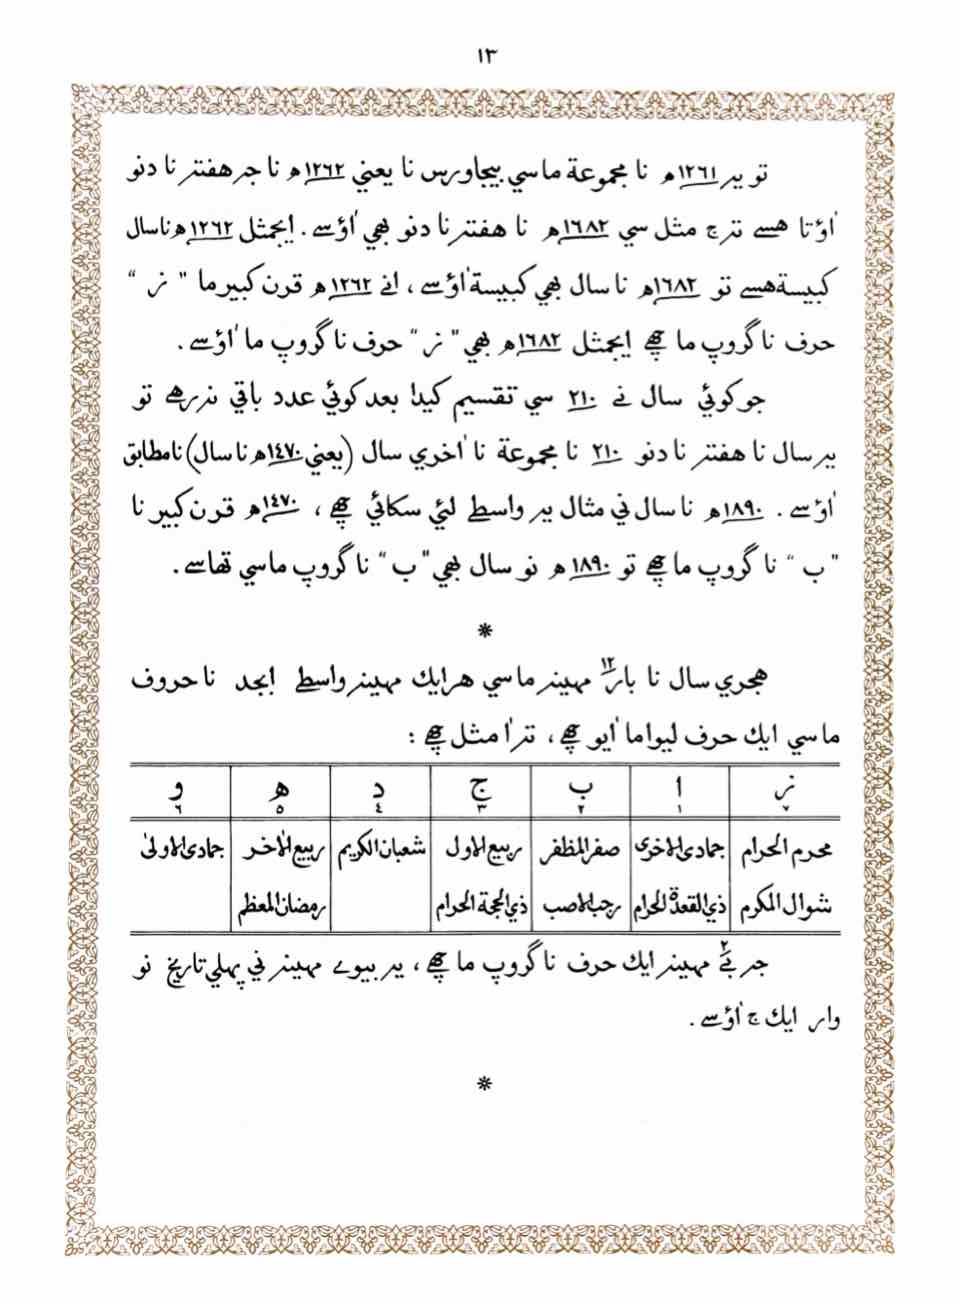 ١٣
تو يه ١٢٦١هـ نا مجموعة ماسي بيجا ورس نا يعني ١٢٦٢هـ نا جه هفته نا دنو
اْؤتا هسے تهج مثل سي ١٦٨٢هـ نا هفته نا دنو بهي اْؤسے . ايجمثل ١٢٦٢هـ نا سال
كبيسة هسے تو ١٦٨٢هـ نا سال بهي كبيسة اْؤسے ، انے ١٢٦٢هـ قرن كبير ما " ز "
حرف نا گروپ ما چهے ايجمثل ١٦٨٢هـ بهي " ز " حرف نا گروپ ما اْؤسے .
جو كوئي سال نے ٢١٠ سي تقسيم كيدا بعد كوئي عدد باقي نه رهے تو
يه سال نا هفته نا دنو ٢١٠ نا مجموعة نا اْخري سال (يعني ١٤٧٠هـ نا سال) نا مطابق
اْؤسے . ١٨٩٠هـ نا سال ني مثال يه واسطے لئي سكائي چهے ، ١٤٧٠هـ قرن كبير نا
" ب " نا گروپ ما چهے تو ١٨٩٠هـ نو سال بهي " ب " نا گروپ ماسي تهاسے .
*
هجري سال نا باره ١٢ مهينه ماسي هر ايك مهينه واسطے ابجد نا حروف
ماسي ايك حرف ليواما اْيو چهے ، ته اْ مثل چهے :
ز ا ب ج د ه و
٧ ١ ٢ ٣ ٤ ٥ ٦
محرم الحرام جمادى الاخرى صفر المظفر ربيع الاول شعبان الكريم ربيع الاٰخر جمادى الاولىٰ
شوال المكرم ذي القعدة الحرام رجب الاصب ذي الحجة الحرام رمضان المعظم
جه بے ٢ مهينه ايك حرف نا گروپ ما چهے ، يه بيوے مهينه ني پهلي تاريخ نو
وار ايك ج اْؤسے .
*